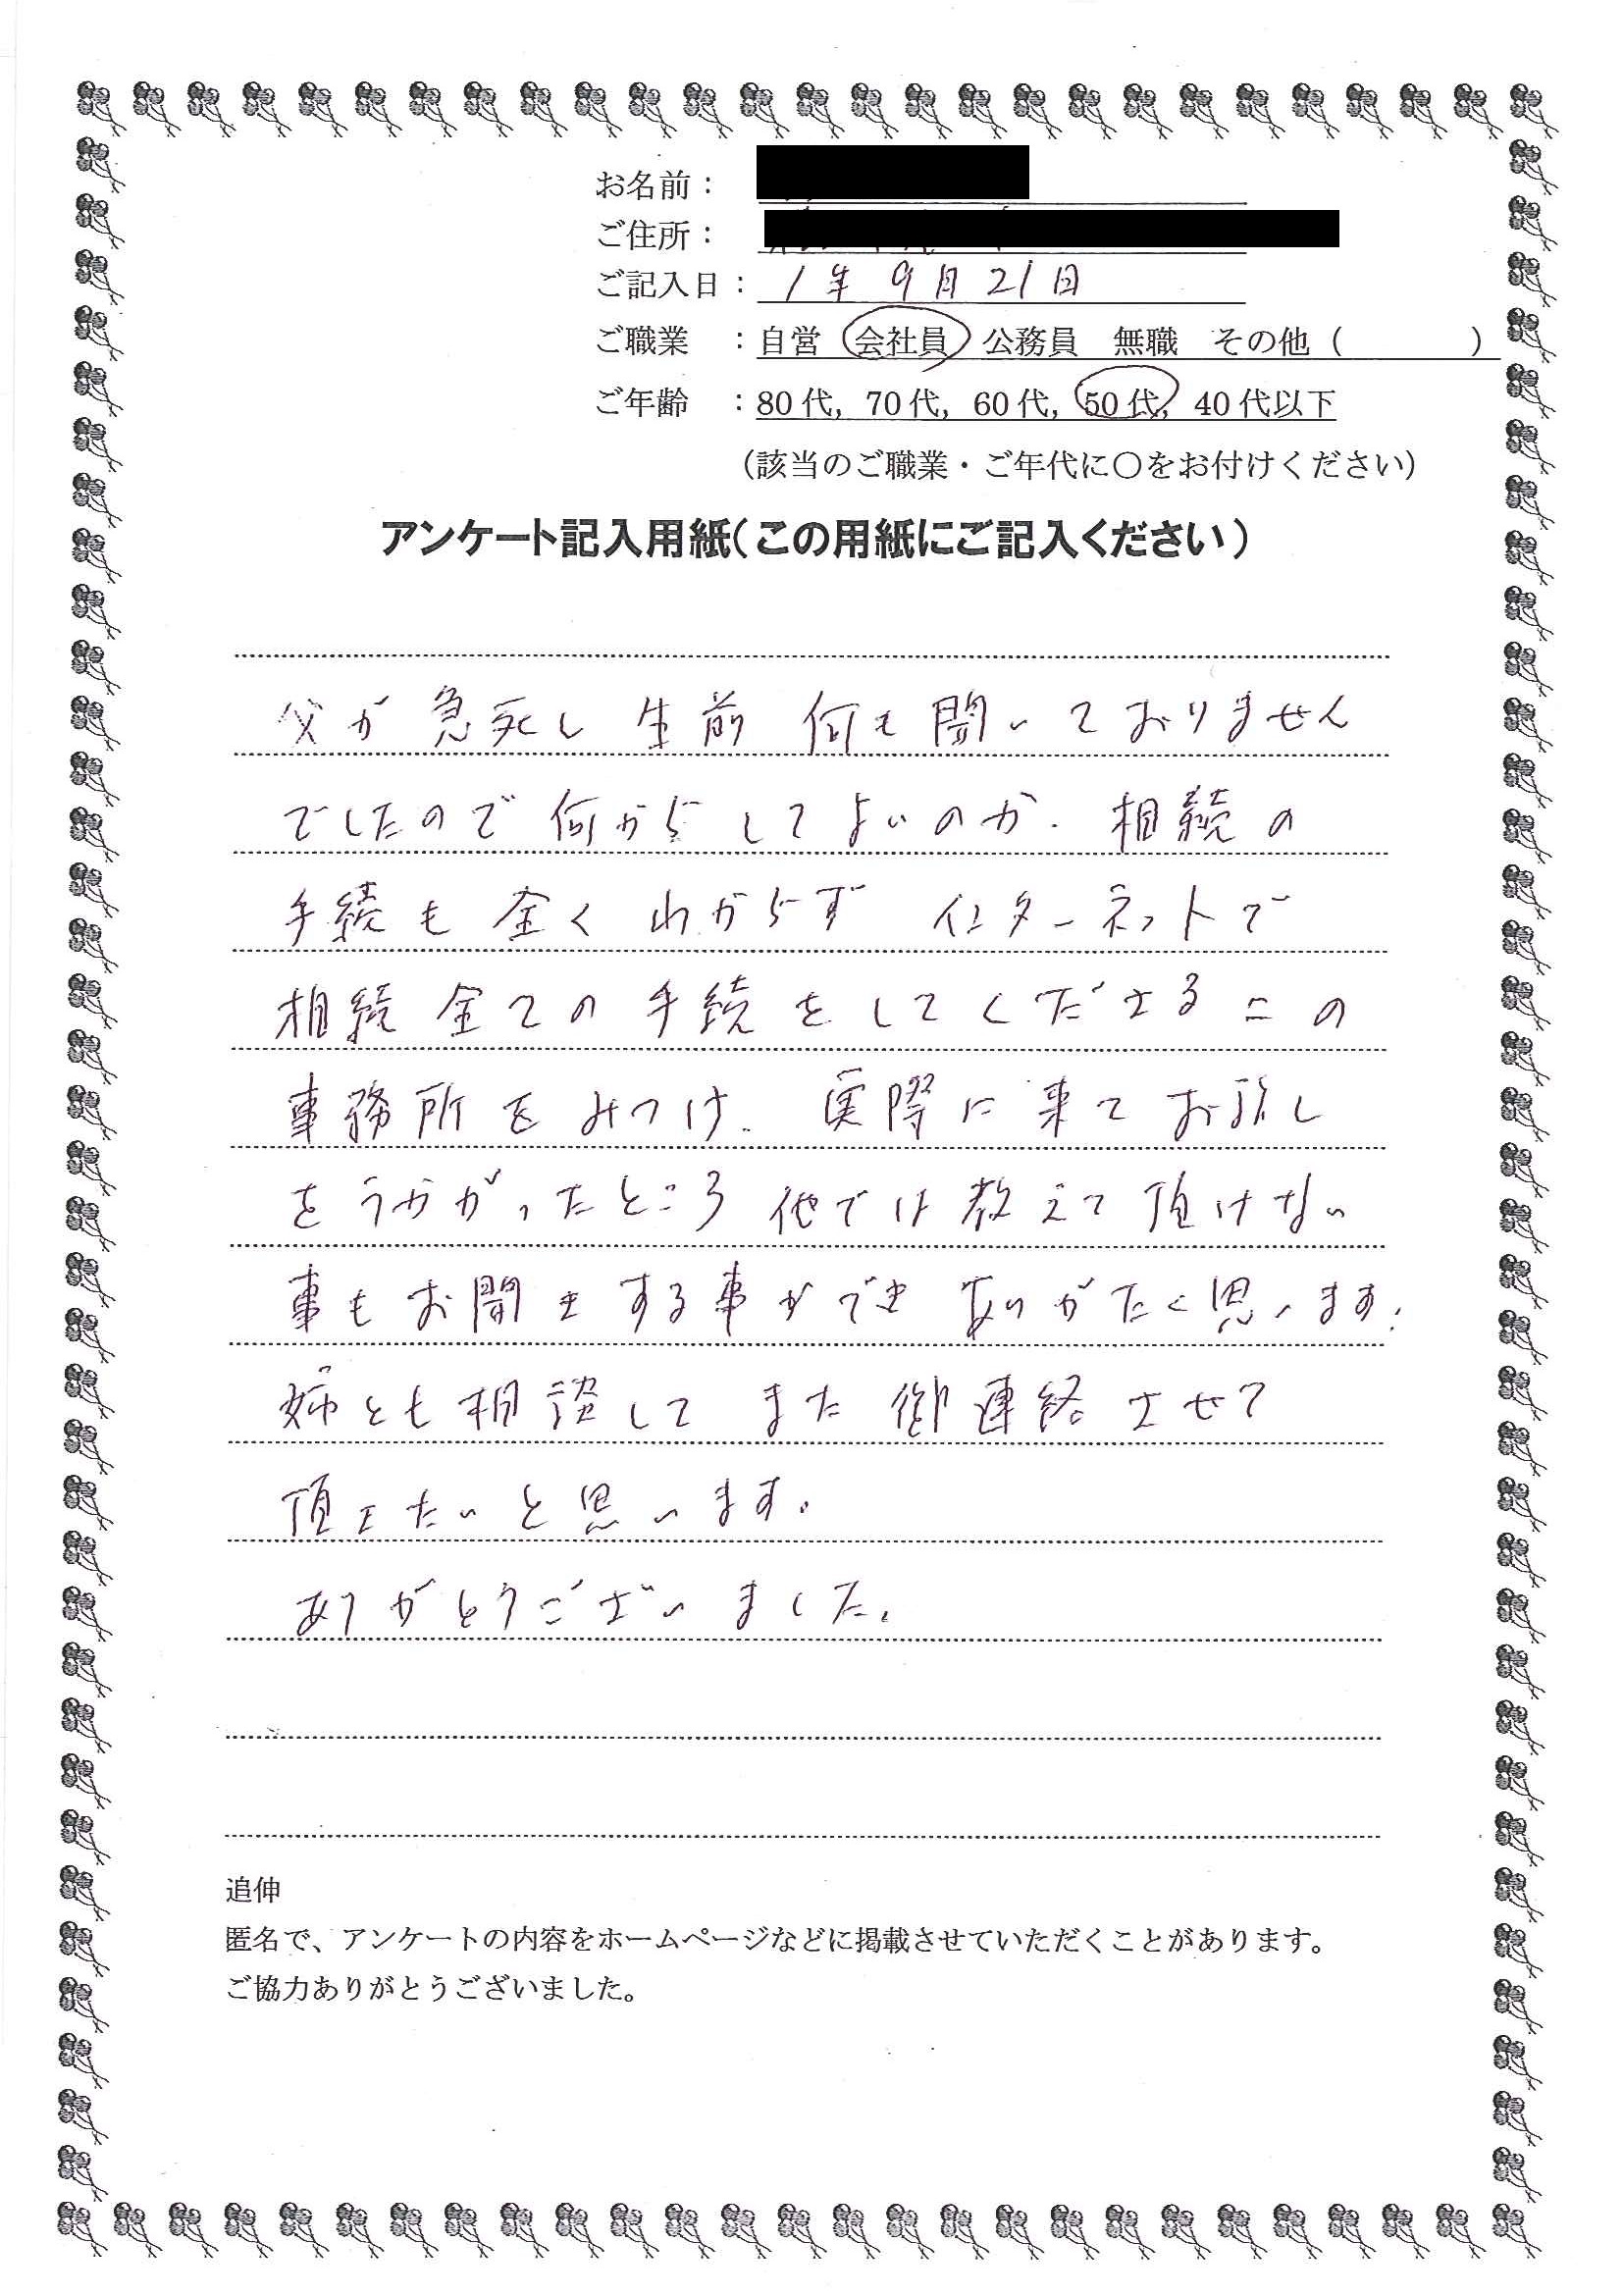 お名前：
ご住所：
ご記入日： 1年 9月 21日
ご職業 ：自営 会社員 公務員 無職 その他（ ）
ご年齢 ：80代，70代，60代，50代，40代以下
（該当のご職業・ご年代に〇をお付けください）
アンケート記入用紙（この用紙にご記入ください）
父が急死し生前何も聞いておりません
でしたので何からしてよいのか、相続の
手続も全くわからず インターネットで
相続全ての手続をしてくださるこの
事務所をみつけ、実際に来てお話し
をうかがったところ他では教えて頂けない
事もお聞きする事ができありがたく思います。
姉とも相談して また御連絡させて
頂きたいと思います。
ありがとうございました。
追伸
匿名で、アンケートの内容をホームページなどに掲載させていただくことがあります。
ご協力ありがとうございました。